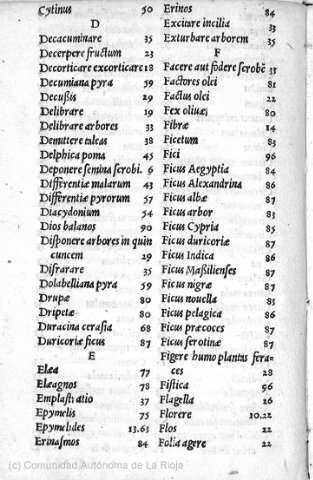 Cytinus 50
D
Decacuminare 35
Decerpere fructum 23
Decorticare excorticare 18
Decumiana pyra 59
Decußis 29
Delibrare 19
Delibrare arbores 33
Demittere taleas 38
Delphica poma 45
Deponere semina scrobi. 6
Differentiæ malarum 43
Differentiæ pyrorum 57
Diacydonium 54
Dios balanos 90
Disponere arbores in quin
cuncem 29
Disrarare 35
Dolabelliana pyra 59
Drupæ 80
Dripetæ 80
Duracina cerasia 68
Duricoriæ ficus 87
E
Elæa 77
Elæagnos 78
Emplastratio 37
Epymelis 75
Epymelides 13.63
Erinasmos 84
Erinos 84
Excitare incilia 33
Exturbare arborem 35
F
Facere aut fodere scrobẽ 33
Factores olei 81
Factus olei 22
Fex oliuæ 80
Fibræ 14
Ficetum 83
Fici 96
Ficus Aegyptia 84
Ficus Alexandrina 86
Ficus albæ 87
Ficus arbor 83
Ficus Cypria 85
Ficus duricoriæ 87
Ficus Indica 86
Ficus Maßilienses 87
Ficus nigræ 87
Ficus nouella 83
Ficus pelagica 86
Ficus præcoces 87
Ficus serotinæ 87
Figere humo plantas fera-
ces 28
Fistica 96
Flagella 26
Florere 10.22
Flos 22
Folia agere 22
(c) Comunidad Autónoma de La Rioja